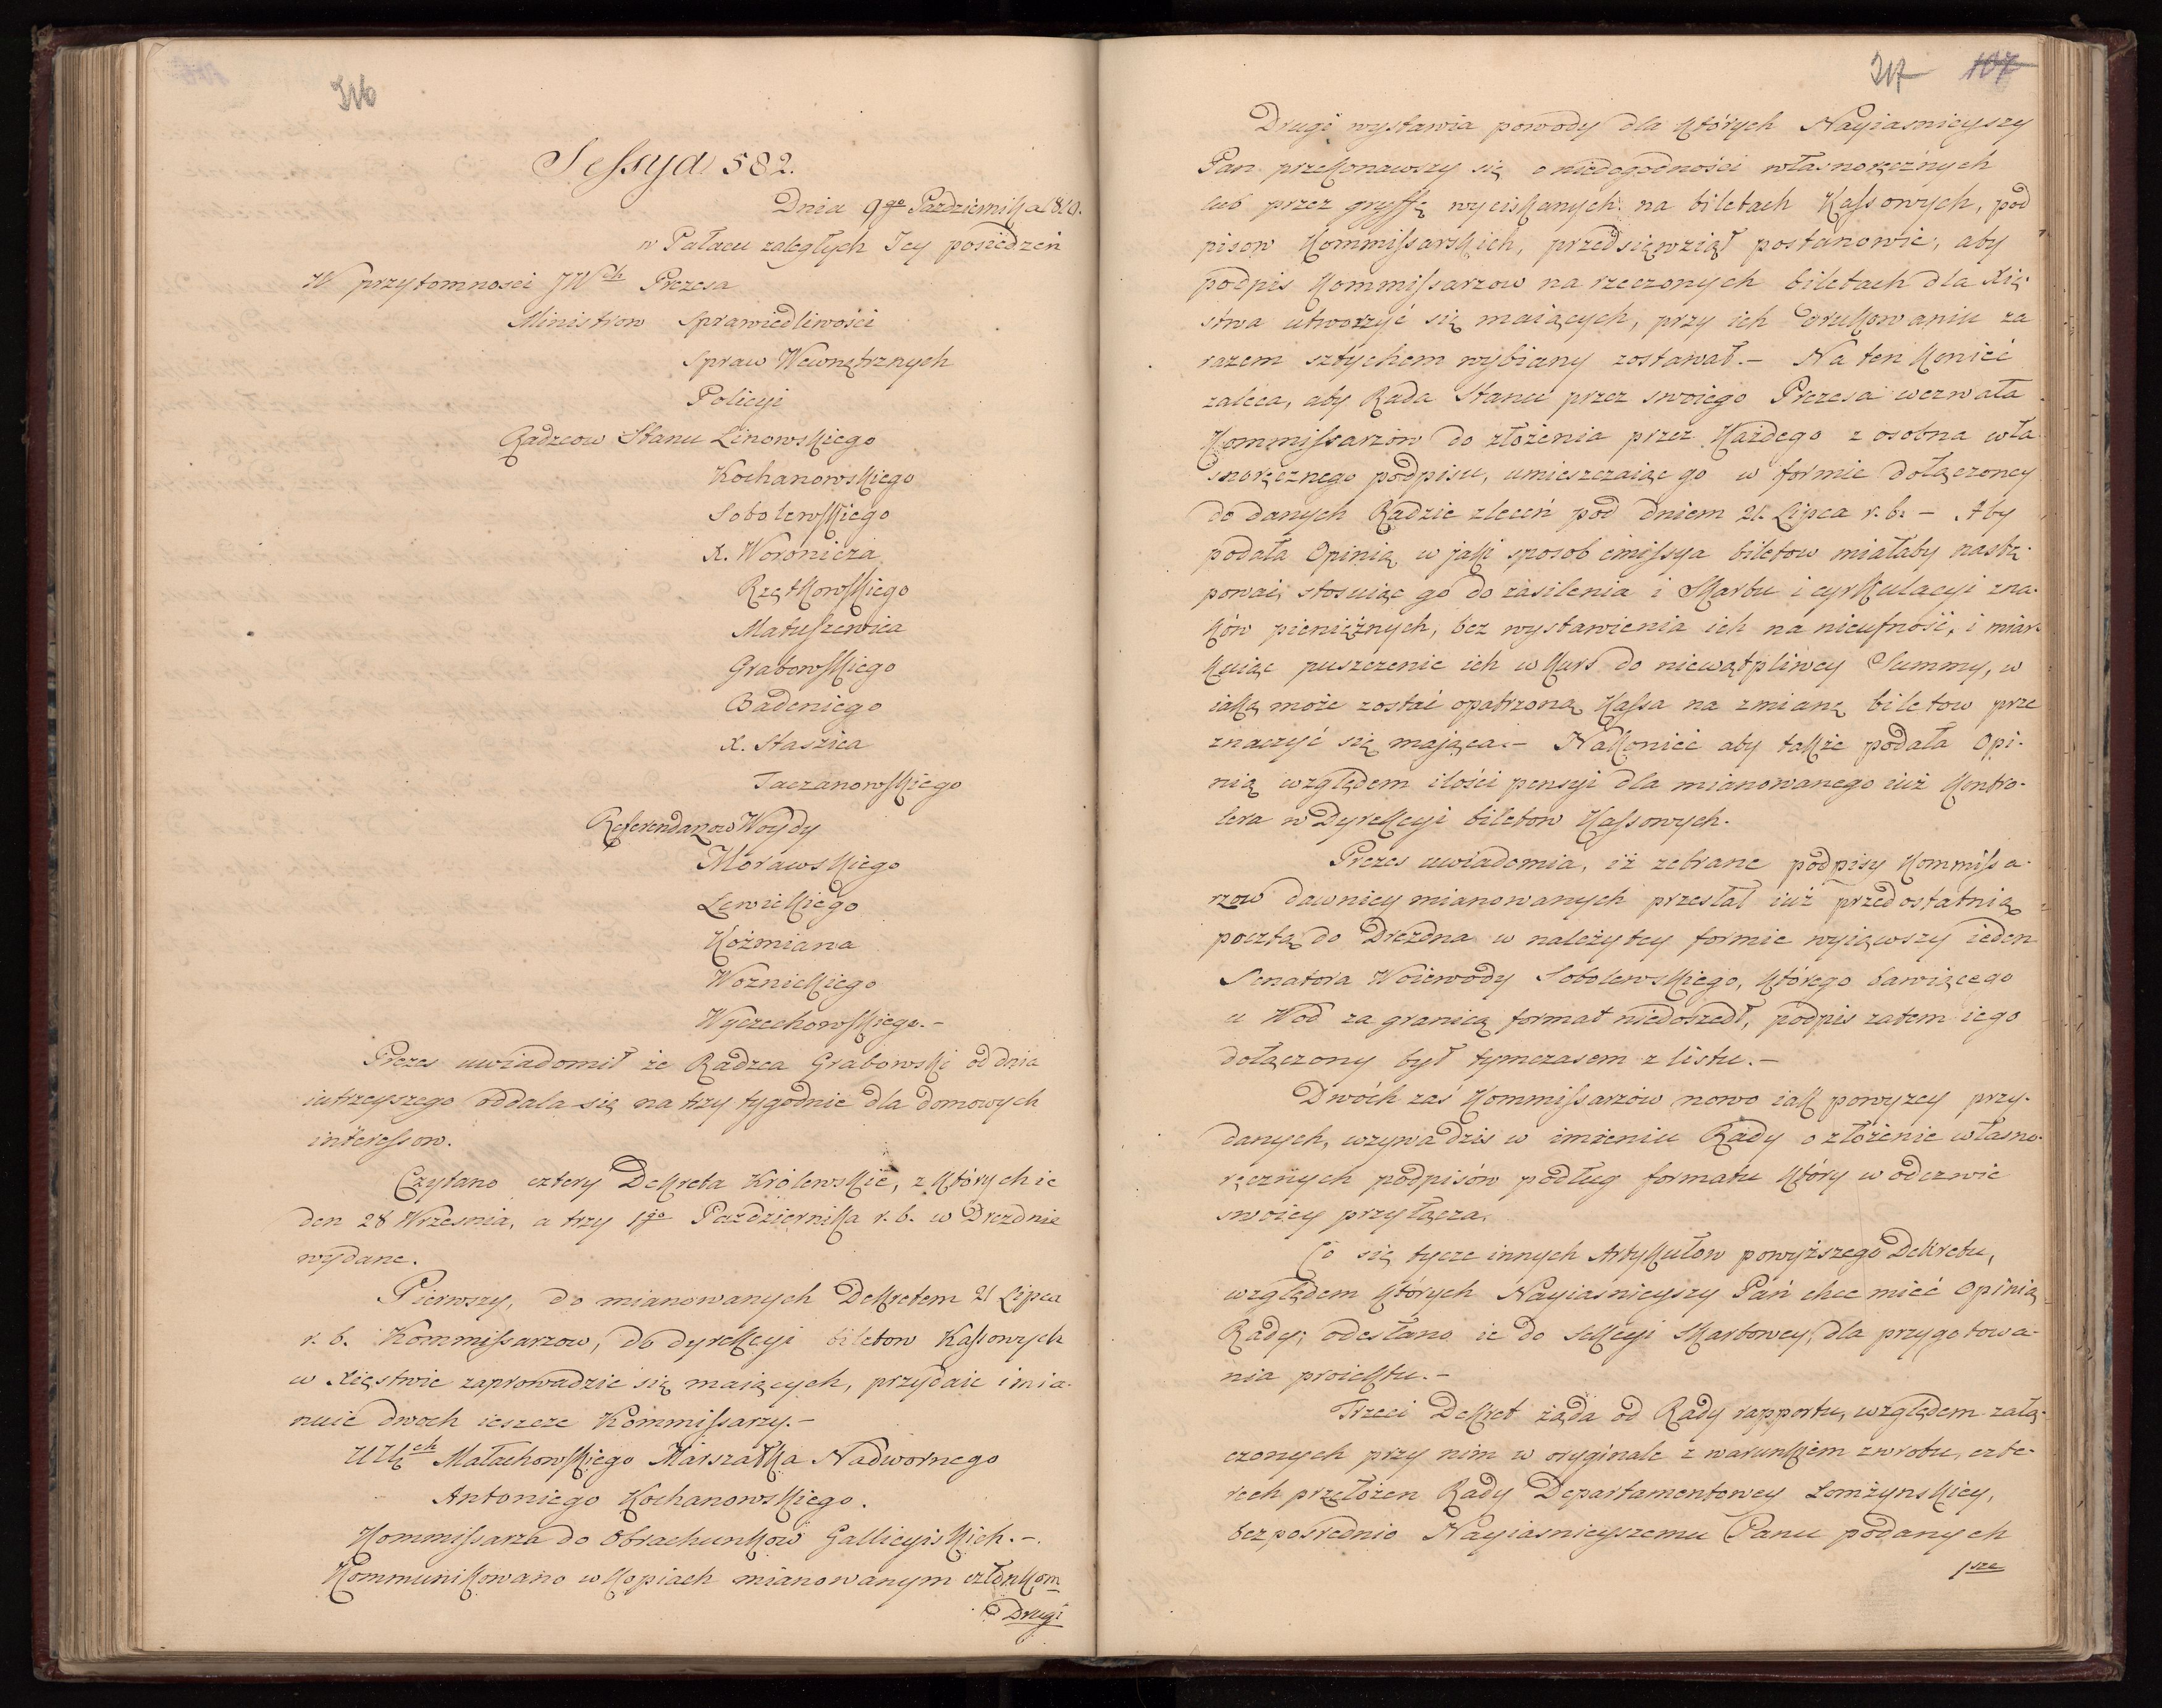 316
Sessya 582.
Dnia 9go Października 1810.
w Pałacu zaległych Jey posiedzeń
W przytomnosci JWch Prezesa
Ministrow Sprawiedliwości
Spraw Wewnętrznych
Policyi
Radzcow Stanu Linowskiego
Kochanowskiego
Sobolewskiego
X. Woronicza
Rzętkowskiego
Matuszewica
Grabowskiego
Badeniego
X. Staszica
Taczanowskiego
Referendarzow Woydy
Morawskiego
Lewickiego
Koźmiana
Woznickiego
Wyczechowskiego.-
Prezes uwiadomił że Radzca Grabowski od dnia
iutrzeyszego oddala się na trzy tygodnie dla domowych
interessow.
Czytano cztery Dekreta Królewskie, z których ie
den 28 Wrzesnia, a trzy 1go Października r. b. w Dreznie
wydane.
Pierwszy, do mianowanych Dekretem 21 Lipca
r. b. Kommissarzow, do dyrekcyi biletow Kassowych
w Xięstwie zaprowadzic się maiących, przydaie i mia-
nuie dwoch ieszcze Kommissarzy.-
Małachowskiego Marszałka Nadwornego
Antoniego Kochanowskiego.
Kommissarza do Obrachunkow Gallicyiskich.-
Kommunikowano w kopiach mianowanym członkom
Drugi
317 107
Drugi wystawia powody dla których Nayiasnieyszy
Pan przekonawszy się o niedogodności własnoręcznych
lub przez gryffę wyciskanych na biletach Kassowych, pod
pisow Kommissarskich, przedsięwziął postanowić, aby
podpis Kommissarzow na rzeczonych biletach dla Xię-
stwa utworzyć się maiących, przy ich drukowaniu za
razem sztychem wybiany zostawał.- Na ten koniec
zaleca, aby Rada Stanu przez swoiego Prezesa wezwała
Kommissarzów do złożenia przez każdego z osobna wła
snoręcznego podpisu, umieszczaiąc go w formie dołączoney
do danych Radzie zleceń pod dniem 21. Lipca r. b. - Aby
podała Opinią w jaki sposob emissya biletow miałaby nastę-
pować, stosuiąc go do zasilenia i Skarbu i cyrkulacyi zna-
ków pieniężnych, bez wystawienia ich na nieufność, i miar-
kuiąc puszczenie ich w kurs do niewątpliwey Summy, w
iaką może zostać opatrzoną Kassa na zmianę biletow prze
znaczyć się mająca.- Nakoniec aby także podała Opi-
nią względem ilości pensyi dla mianowanego iuż Kontro-
lera w Dyrekcyi biletow Kassowych.
Prezes uwiadomia, iż zebrane podpisy Kommissa-
rzow dawniey mianowanych przesłał iuż przedostatnią
pocztą do Drezdna w należytey formie wyiąwszy ieden
Senatora Woiewody Sobolewskiego, którego bawiącego
u Wod za granicą format niedoszedł, podpis zatem iego
dołączony był tymczasem z listu.-
Dwóch zaś Kommissarzów nowo iak powyzey przy-
danych, wzywa dzis w imieniu Rady o złożenie własno-
ręcznych podpisów podług formatu który w odezwie
swoiey przyłącza.
Co się tycze innych Artykułow powyższego Dekretu,
względem których Nayiasnieyszy Pań chce mieć Opinią
Rady, odesłano ie do Sekcyi Skarbowey, dla przygotowa-
nia proiektu.-
Trzeci Dekret żąda od Rady rapportu, względem załą-
czonych przy nim w oryginale z warunkiem zwrotu, czte-
rech przełożen Rady Departamentowey Łomżynskiey,
bezposrednio Nayiasnieyszemu Panu podanych
1sze